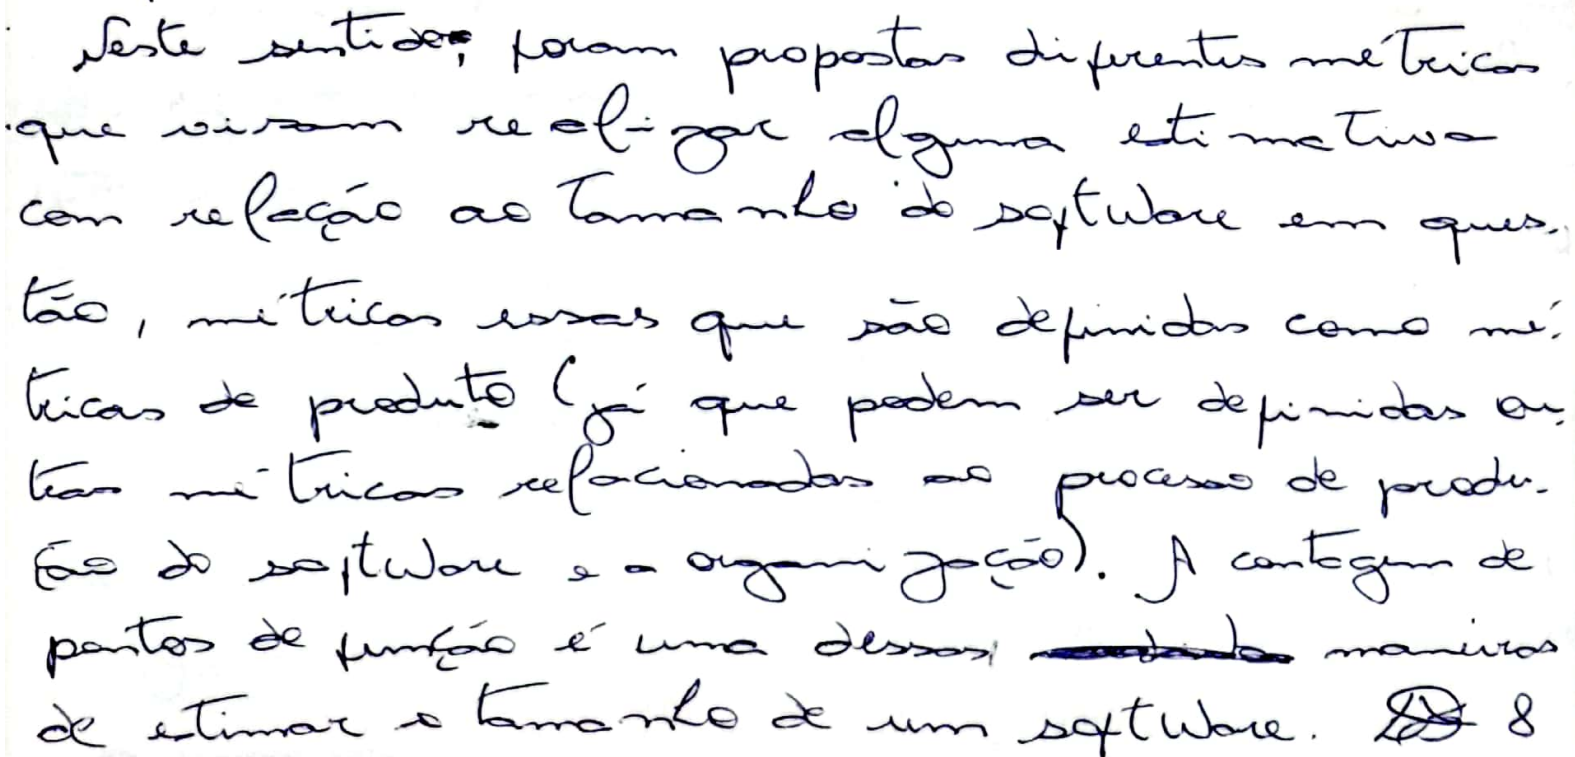 Neste sentido, foram propostas diferentes métricas
que visam realizar alguma estimativa
com relação ao tamanho do software em ques-
tão, métricas essas que são definidas como mé-
tricas de produto (já que podem ser definidas ou-
tras métricas relacionadas ao processo de produ-
ção do software e a organização). A contagem de
pontos de função é uma dessas maneiras
de estimar o tamanho de um software. 8